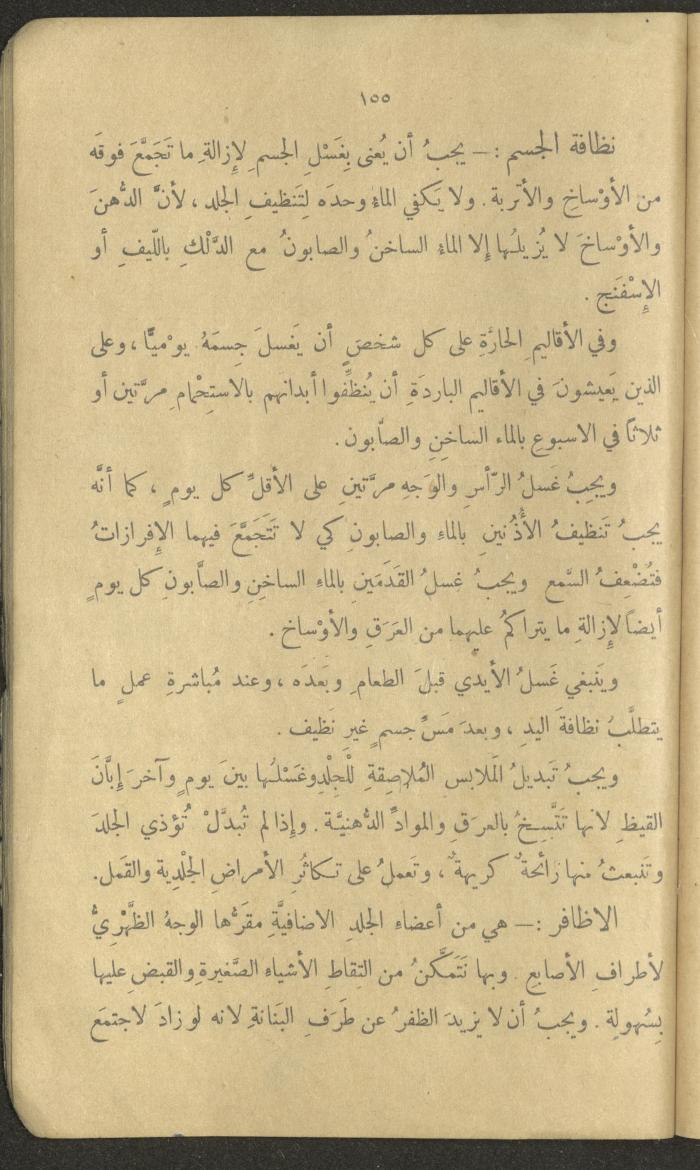 ١٥٥
نظافة الجسم : — يجبُ أن يُعنى بِغَسْلِ الجسمِ لِإزالةِ ما تَجَمَّعَ فوقَه
من الأوْساخِ والأتربة . ولا يَكفي الماءُ وحدَه لِتَنظيفِ الجلد ، لأنَّ الدُّهنَ
والأوْساخَ لا يُزيلُها إلا الماءُ الساخنُ والصابونُ مع الدَّلْكِ باللّيفِ أو
الإِسْفَنج .
وفي الأقاليمِ الحارَّةِ على كل شخصَ أن يَغسلَ جِسمَهُ يوْميًّا ، وعلى
الذين يَعيشونَ في الأقاليم الباردَةِ أن يُنظِّفوا أبدانهم بالاستِحْمامِ مرَّتين أو
ثلاثاً في الاسبوعِ بالماء الساخِنِ والصّابون .
ويجِبُ غَسلُ الرّأسِ والوَجهِ مرَّتينِ على الأقلِّ كل يومٍ ، كما أنَّه
يجبُ تَنظيفُ الأُذُنينِ بالماءِ والصابونِ كي لا تَتَجَمَّعَ فيهما الإِفرازاتُ
فتُضْعِفُ السَّمع ويجبُ غسلُ القَدَمَين بالماءِ الساخنِ والصَّابونِ كل يومٍ
أيضاً لإزالةِ ما يتراكمُ عليهما من العَرَقِ والأوْساخ .
ويَنبغي غَسلُ الأيدي قبلَ الطعامِ وبَعدَه ، وعند مُباشرةِ عملٍ ما
يتطلَّبُ نظافةَ اليدِ ، وبعدَ مَسِّ جسمٍ غيرِ نَظيف .
ويجبُ تَبديلُ المَلابس المُلاصِقةِ لِلْجِلدِ وغَسْلُها بينَ يومٍ وآخرَ إبَّانَ
القيظِ لانها تَتَّسِخُ بالعرَقِ والموادِّ الدُّهنيَّة . وإذا لم تُبدَّلْ تُؤذي الجلدَ
وتَنبعثُ منها رَائحةٌ كريهةٌ ، وتَعملُ على تكاثُرِ الأمراضِ الجِلْدِية والقَمل.
الاظافر : — هي من أعضاءِ الجلدِ الاضافيَّةِ مقَرُّها الوجهُ الظَّهْرِيُّ
لأطرافِ الأصابعِ . وبها نَتَمَكَّنُ من التِقاطِ الأشياءِ الصَّغيرةِ والقبضِ عليها
بِسُهولة . ويجبُ أن لا يزيدَ الظفرُ عن طَرَفِ البَنانةِ لانه لو زادَ لاجتمَع